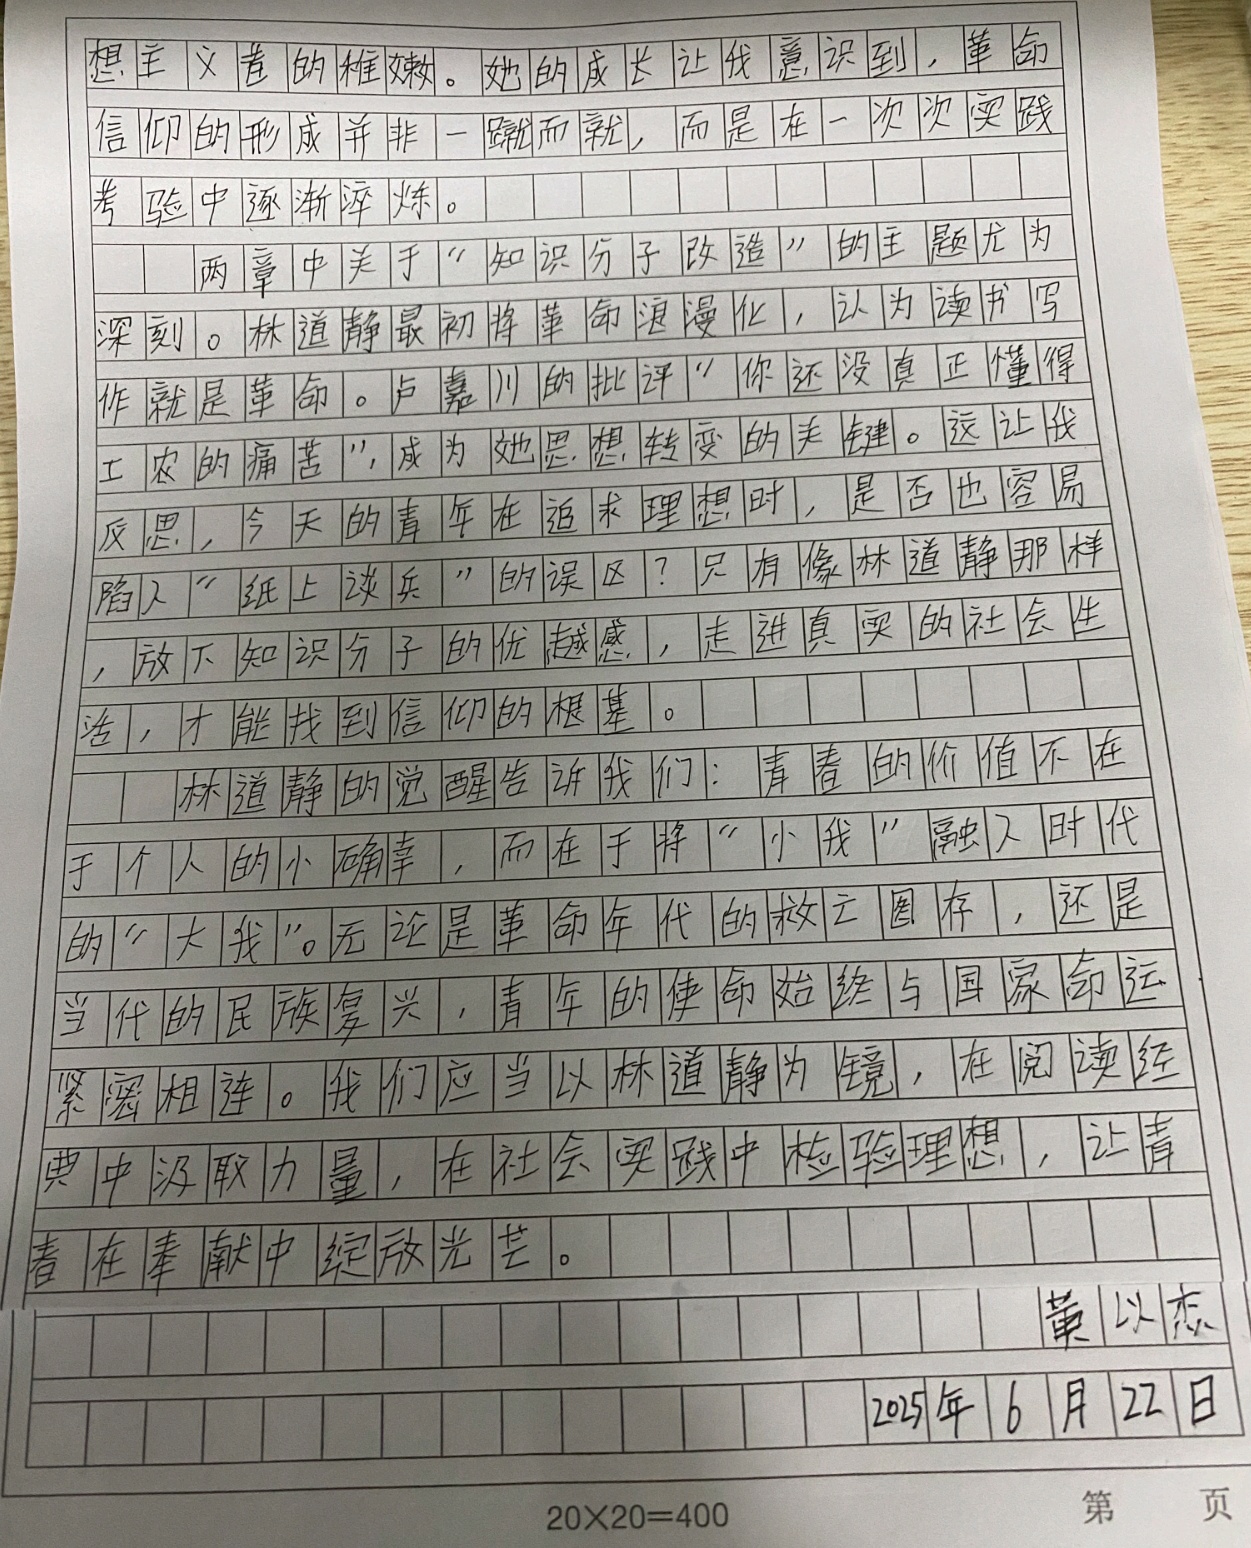 想主义者的稚嫩。她的成长让我意识到，革命
信仰的形成并非一蹴而就，而是在一次次实践
考验中逐渐淬炼。
两章中关于“知识分子改造”的主题尤为
深刻。林道静最初将革命浪漫化，认为读书写
作就是革命。卢嘉川的批评“你还没真正懂得
工农的痛苦”，成为她思想转变的关键。这让我
反思，今天的青年在追求理想时，是否也容易
陷入“纸上谈兵”的误区？只有像林道静那样
，放下知识分子的优越感，走进真实的社会生
活，才能找到信仰的根基。
林道静的觉醒告诉我们：青春的价值不在
于个人的小确幸，而在于将“小我”融入时代
的“大我”。无论是革命年代的救亡图存，还是
当代的民族复兴，青年的使命始终与国家命运
紧密相连。我们应当以林道静为镜，在阅读经
典中汲取力量，在社会实践中检验理想，让青
春在奉献中绽放光芒。
黄以恋
2025年6月22日
20×20=400
第 页